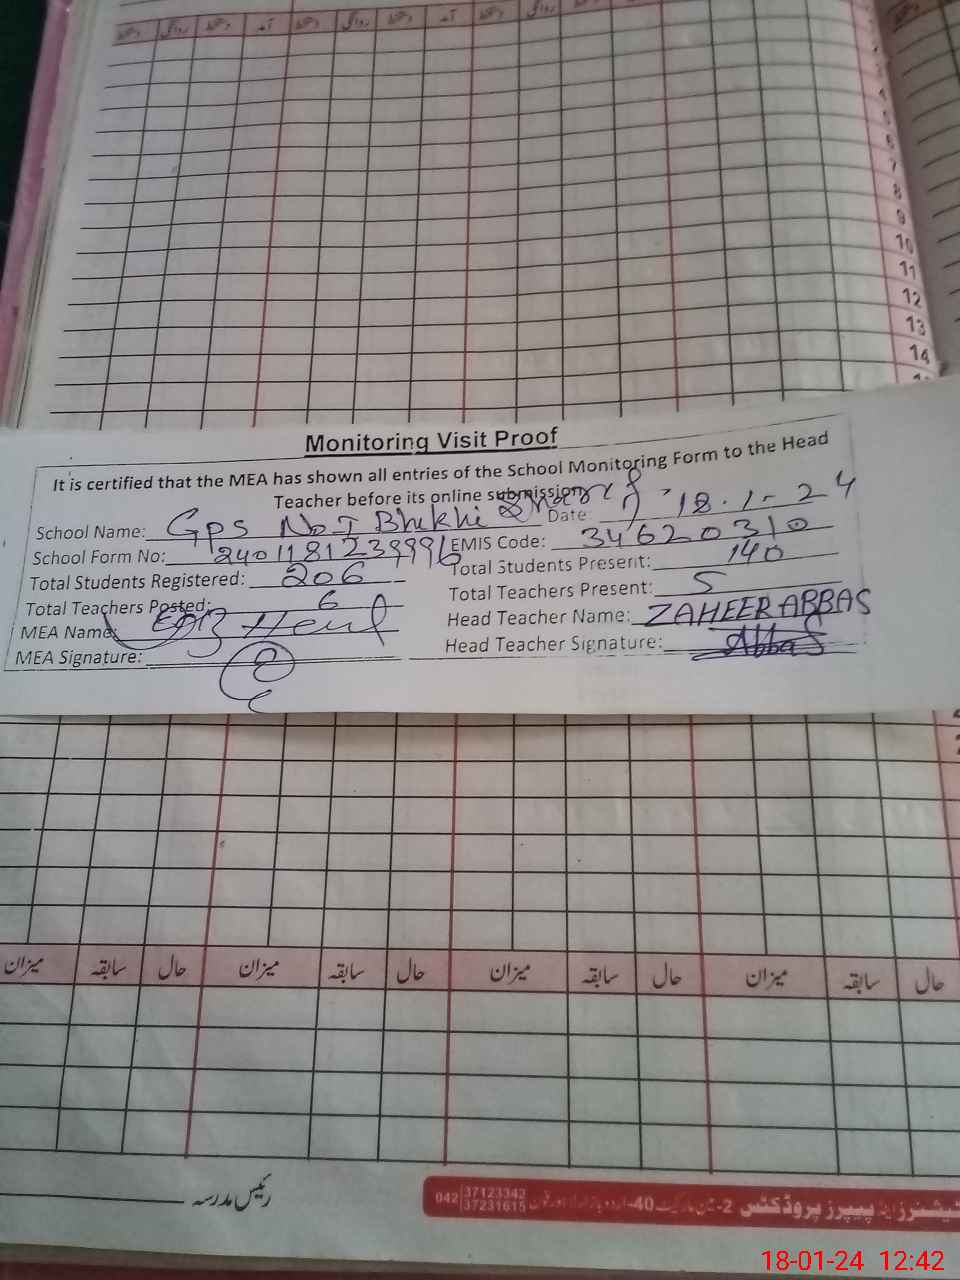 دستخط روانگی دستخط آمد دستخط روانگی دستخط آمد دستخط روانگی
4
5
6
7
8
9
10
11
12
13
14
Monitoring Visit Proof
It is certified that the MEA has shown all entries of the School Monitoring Form to the Head
Teacher before its online submission.
School Name: Gps No.I Bhikhi Sharif Date: 18.1-24
School Form No: 2401181239996 EMIS Code: 34620310
Total Students Registered: 206 Total Students Present: 140
Total Teachers Posted: 6 Total Teachers Present: 5
MEA Name: Head Teacher Name: ZAHEER ABBAS
MEA Signature: Head Teacher Signature: Abbas
میزان سابقہ حال میزان سابقہ حال میزان سابقہ حال میزان سابقہ حال
رئیس مدرسہ
042 37123342
37231615
اینڈ پیپرز پروڈکٹس 2-
18-01-24 12:42